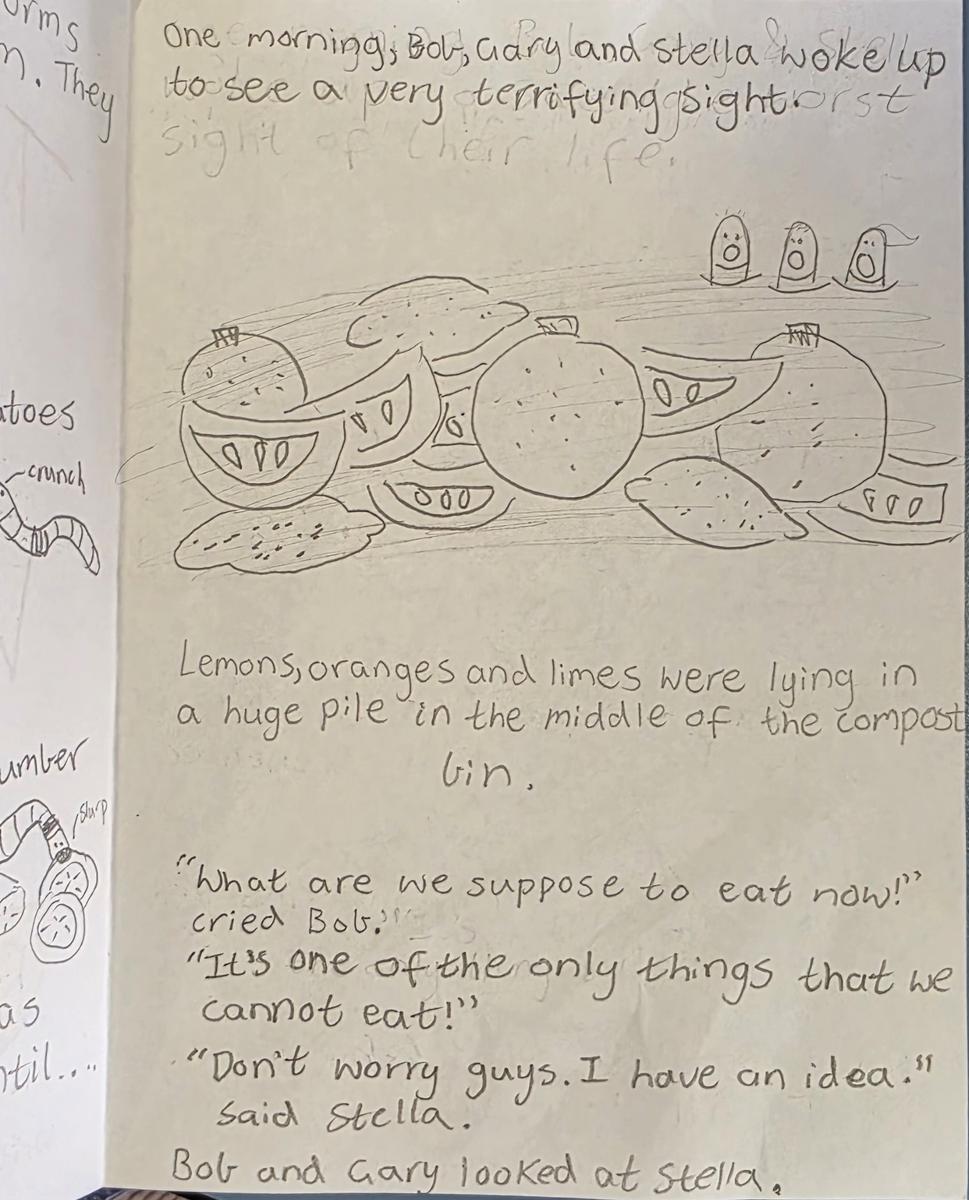 n. They
crunch
slurp
One morning, Bob, Gary and Stella woke up
to see a very terrifying sight.
sight of their life.
Lemons, oranges and limes were lying in
a huge pile in the middle of the compost
bin.
"What are we suppose to eat now!"
cried Bob.
"It's one of the only things that we
cannot eat!"
"Don't worry guys. I have an idea."
said Stella.
Bob and Gary looked at Stella.